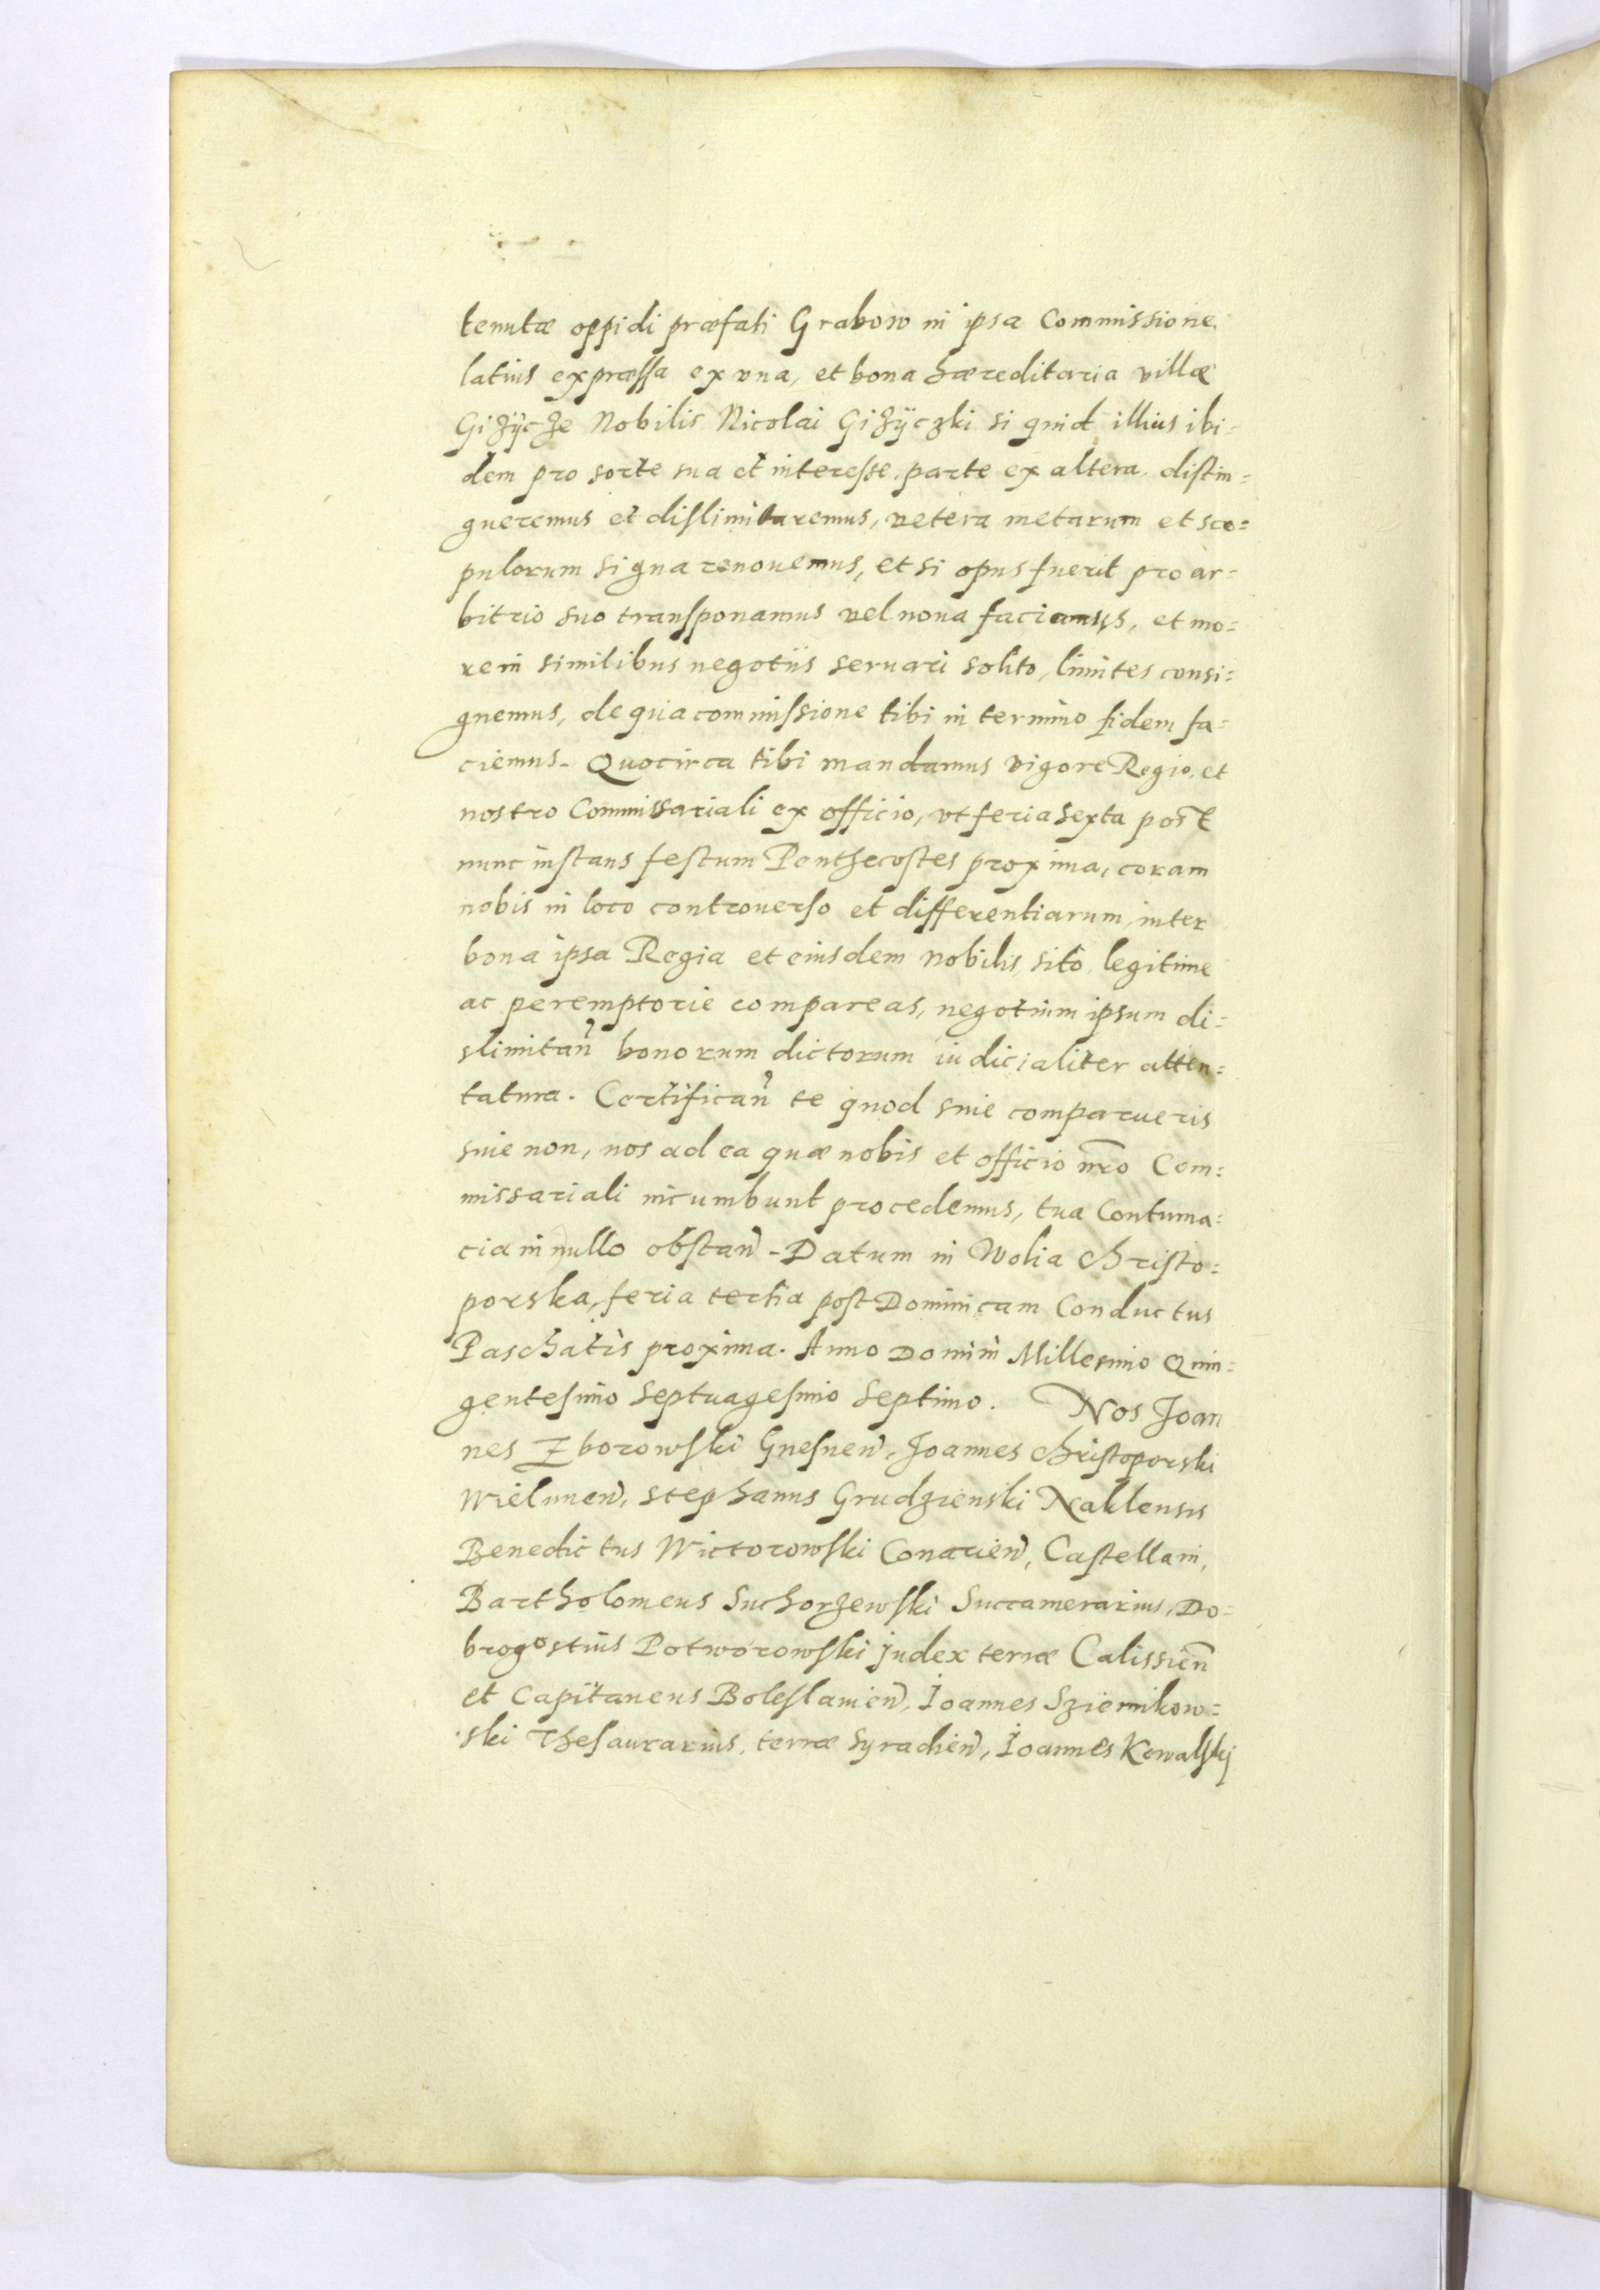 tenutæ oppidi præfati Grabow in ipsa Commissione
latius expræssa ex vna, et bona hæreditaria villæ
Giżÿcże Nobilis Nicolai Giżÿczki si quid illius ibi=
dem pro sorte sua et interesse, parte ex altera distin=
gueremus et dislimitaremus, vetera metarum et sco=
pulorum signa renouemus, et si opus fuerit pro ar=
bitrio suo transponamus vel noua faciamus, et mo=
re in similibus negotiis seruari solito, limites consi=
gnemus, de qua commissione tibi in termino fidem fa=
ciemus. Quocirca tibi mandamus vigore Regio, et
nostro Commissariali ex officio, vt feria sexta post
nunc instans festum Penthecostes proxima, coram
nobis in loco controuerso et differentiarum inter
bona ipsa Regia et eiusdem nobilis, sito legitime
ac peremptorie compareas, negotium ipsum di=
slimitan̄ bonorum dictorum iudicialiter atten=
tatura. Certifican̄ te quod siue comparueris
siue non, nos ad ea quæ nobis et officio nr̄o Com=
missariali incumbunt procedemus, tua Contuma=
cia in nullo obstan̄ - Datum in Wolia Christo=
porska, feria tertia post Dominicam Conductus
Paschatis proxima. Anno Domini Millesimo Quin=
gentesimo Septuagesimo Septimo. Nos Joan
nes Zborowski Gnesnen̄, Joannes Christoporski
Wielunen̄, Stephanus Grudzienski Naklensis
Benedictus Wictorowski Conarien̄, Castellani,
Bartholomeus Suchorżewski Succamerarius, Do=
brogostius Potworowski Judex terræ Calissien̄
et Capitaneus Boleslauien̄, Joannes Sziemikow=
ski Thesaurarius, terræ Syradien̄, Joannes Kowalskj